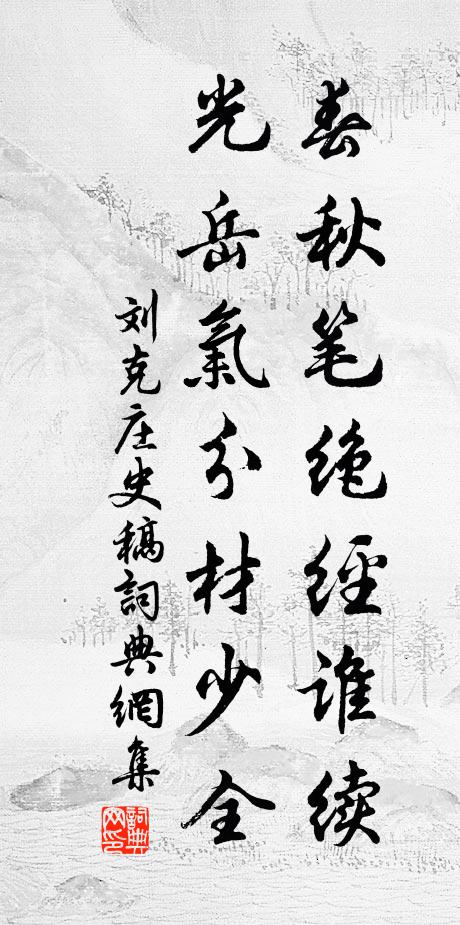 春秋笔绝經谁续
光岳氣分材少全
刘克庄史稿詞典網集
詞典网印